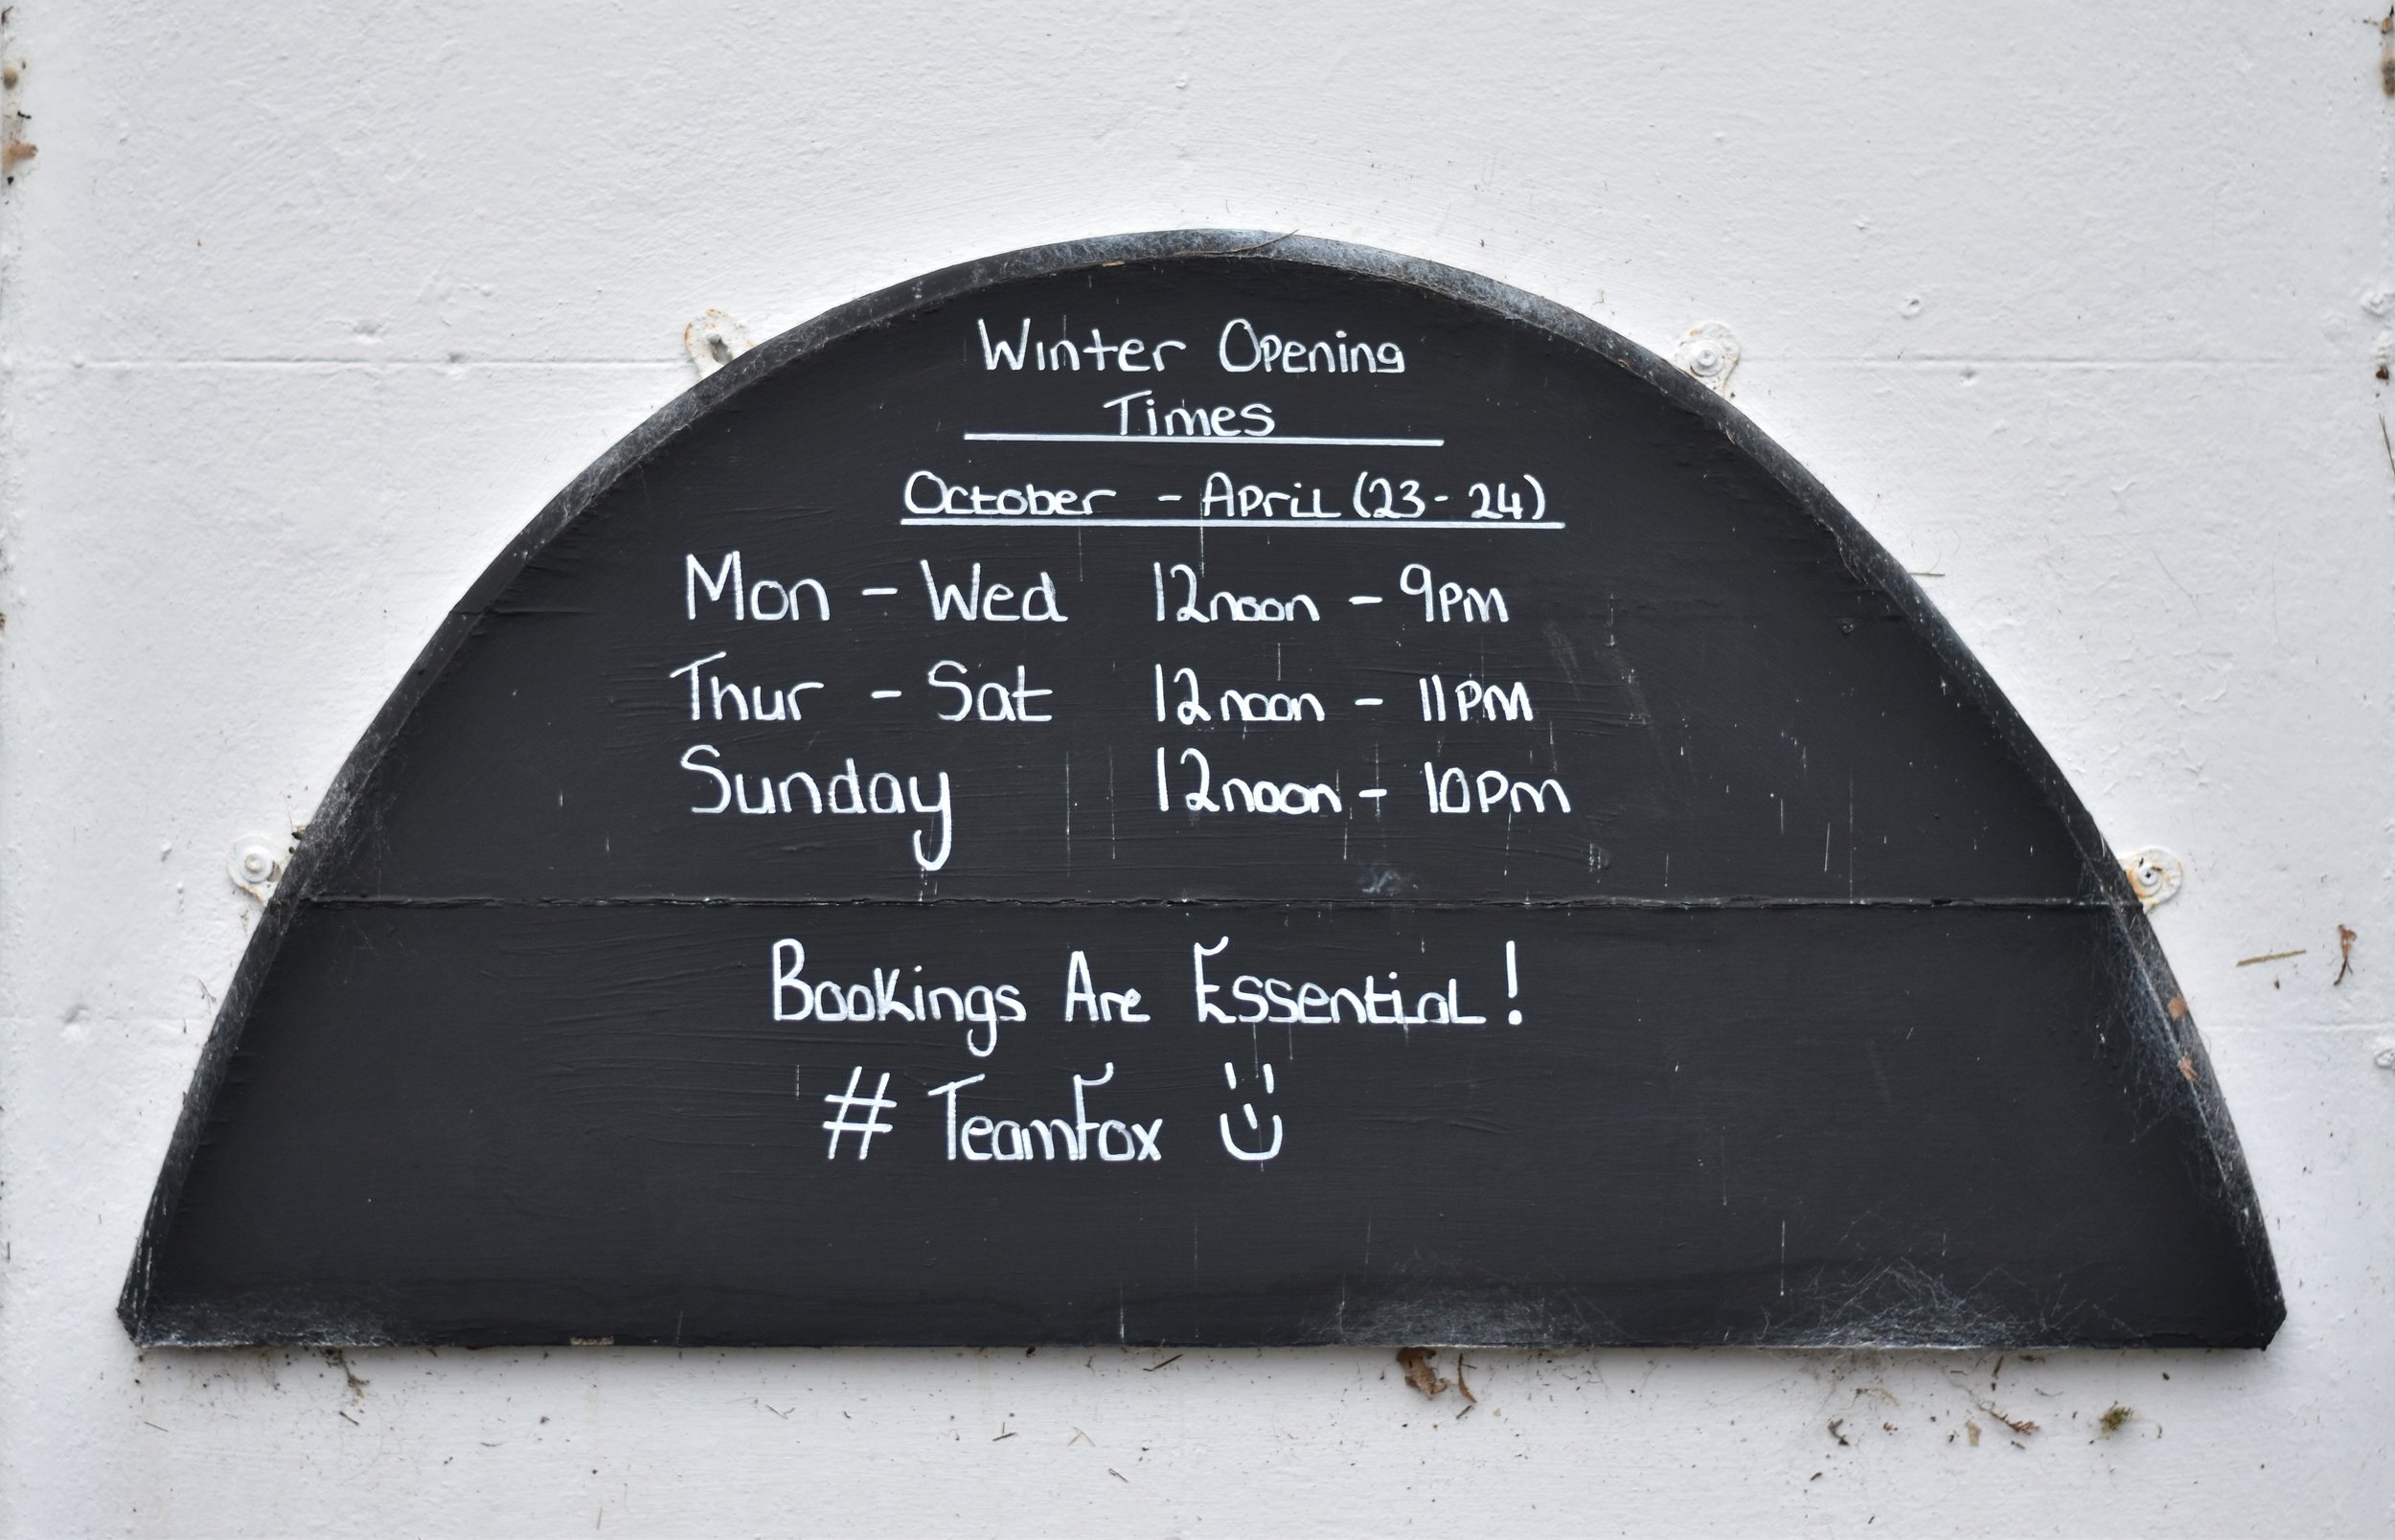 Winter Opening
Times
October - April (23 - 24)
Mon - Wed 12noon - 9pm
Thur - Sat 12noon - 11pm
Sunday 12noon - 10pm
Bookings Are Essential!
# TeamFox